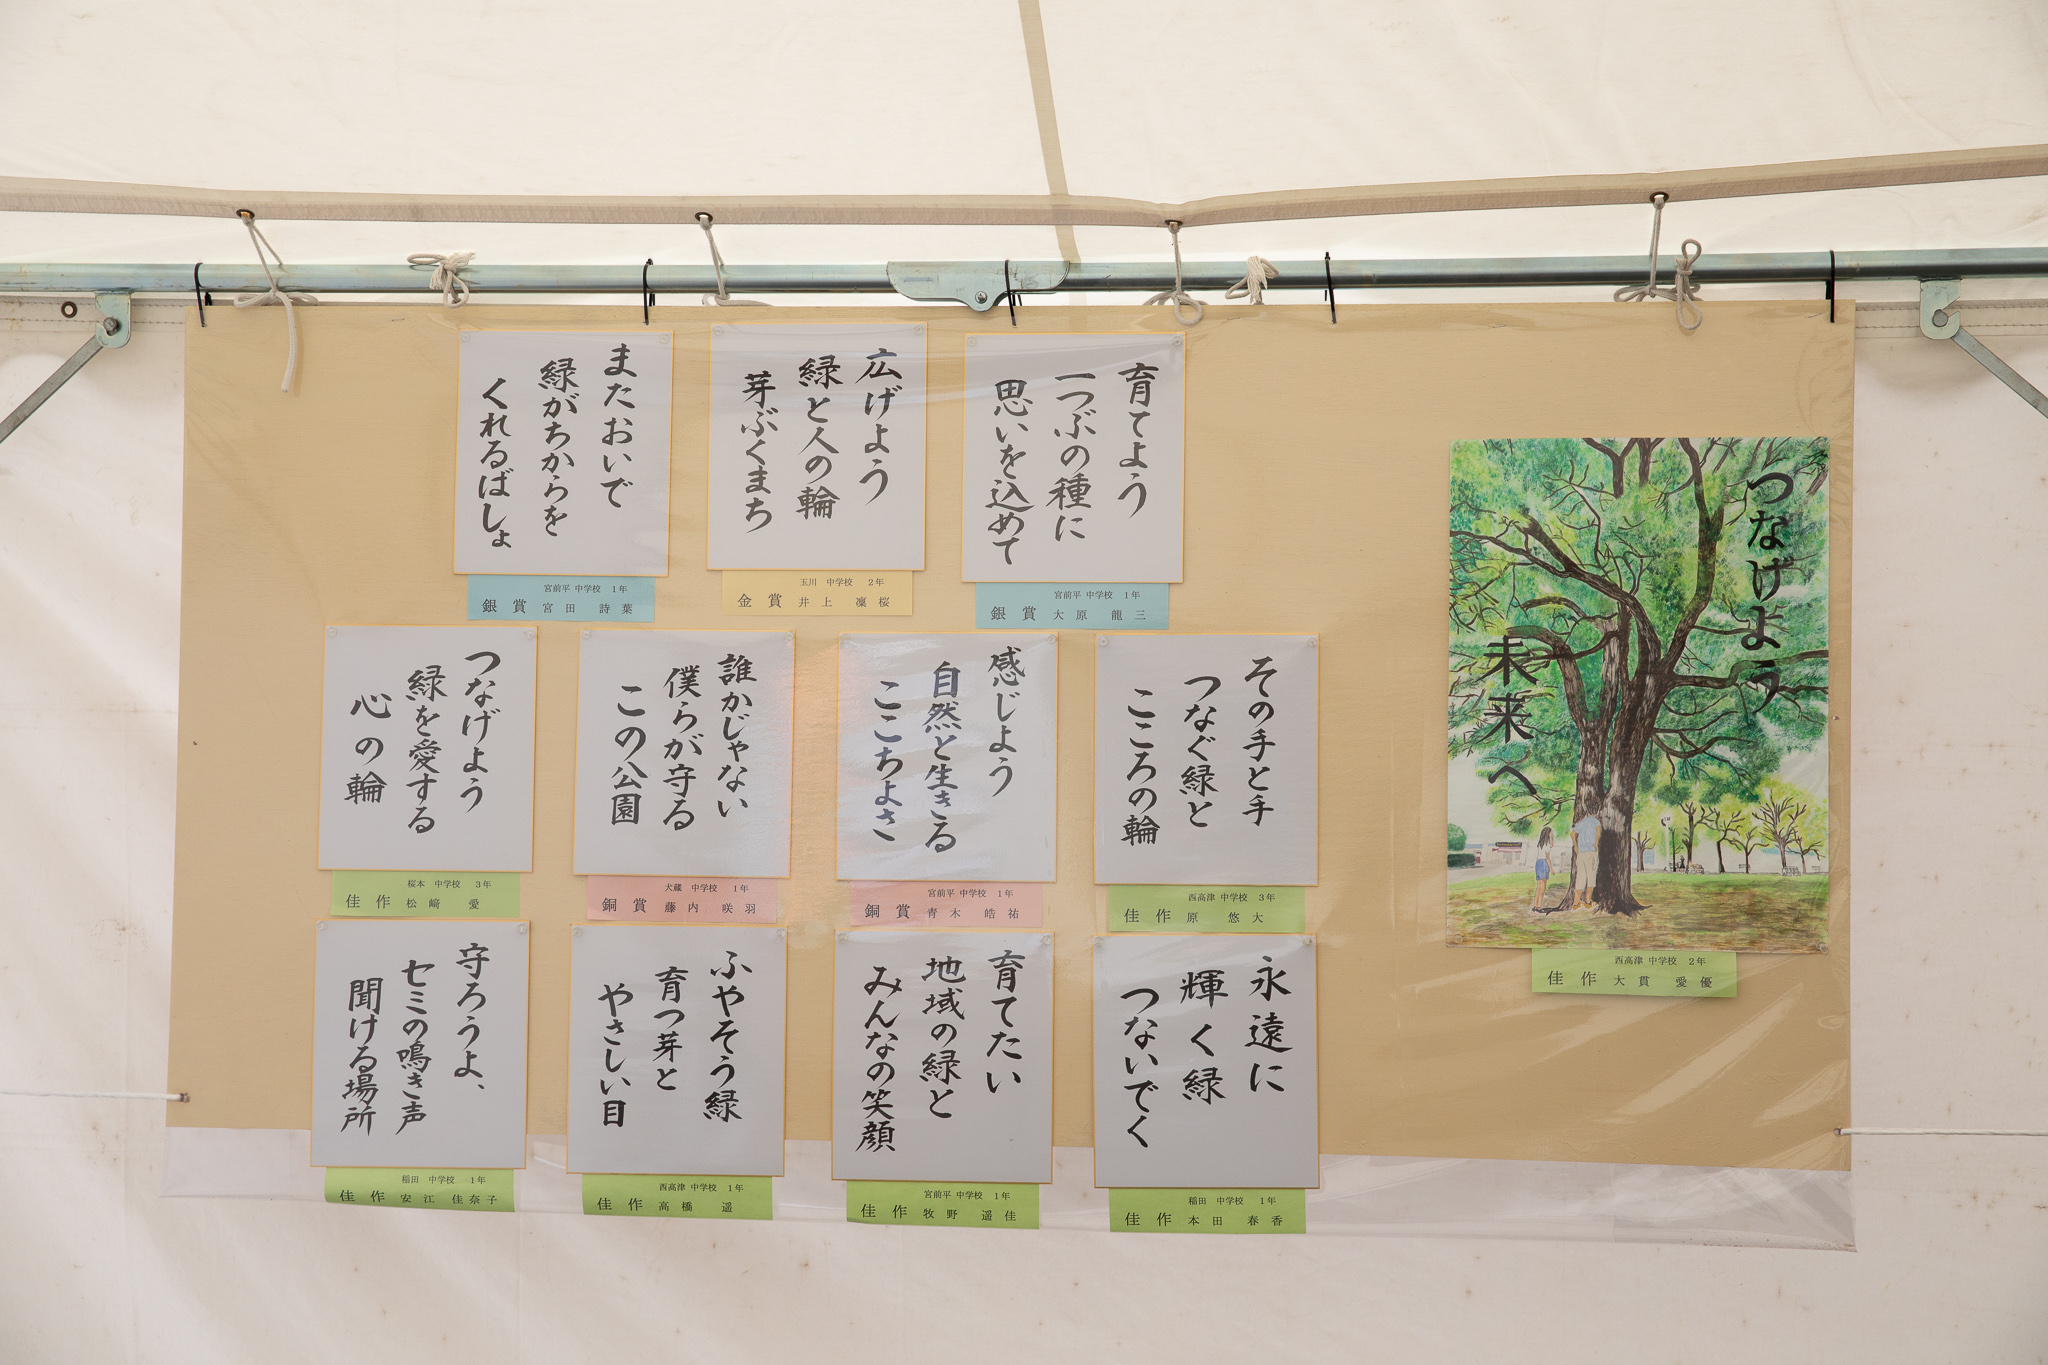 育てよう
一つぶの種に
思いを込めて
宮前平 中学校 1年
銀賞 大原 龍三
広げよう
緑と人の輪
芽ぶくまち
玉川 中学校 2年
金賞 井上 凜桜
またおいで
緑がちからを
くれるばしょ
宮前平 中学校 1年
銀賞 宮田 詩葉
その手と手
つなぐ緑と
こころの輪
西高津 中学校 3年
佳作 原 悠大
感じよう
自然と生きる
ここちよさ
宮前平 中学校 1年
銅賞 青木 皓祐
誰かじゃない
僕らが守る
この公園
犬蔵 中学校 1年
銅賞 藤内 咲羽
つなげよう
緑を愛する
心の輪
桜本 中学校 3年
佳作 松﨑 愛
永遠に
輝く緑
つないでく
稲田 中学校 1年
佳作 本田 春香
育てたい
地域の緑と
みんなの笑顔
宮前平 中学校 1年
佳作 牧野 遥佳
ふやそう緑
育つ芽と
やさしい目
西高津 中学校 1年
佳作 高橋 遥
守ろうよ、
セミの鳴き声
聞ける場所
稲田 中学校 1年
佳作 安江 佳奈子
つなげよう
未来へ
西高津 中学校 2年
佳作 大貫 愛優